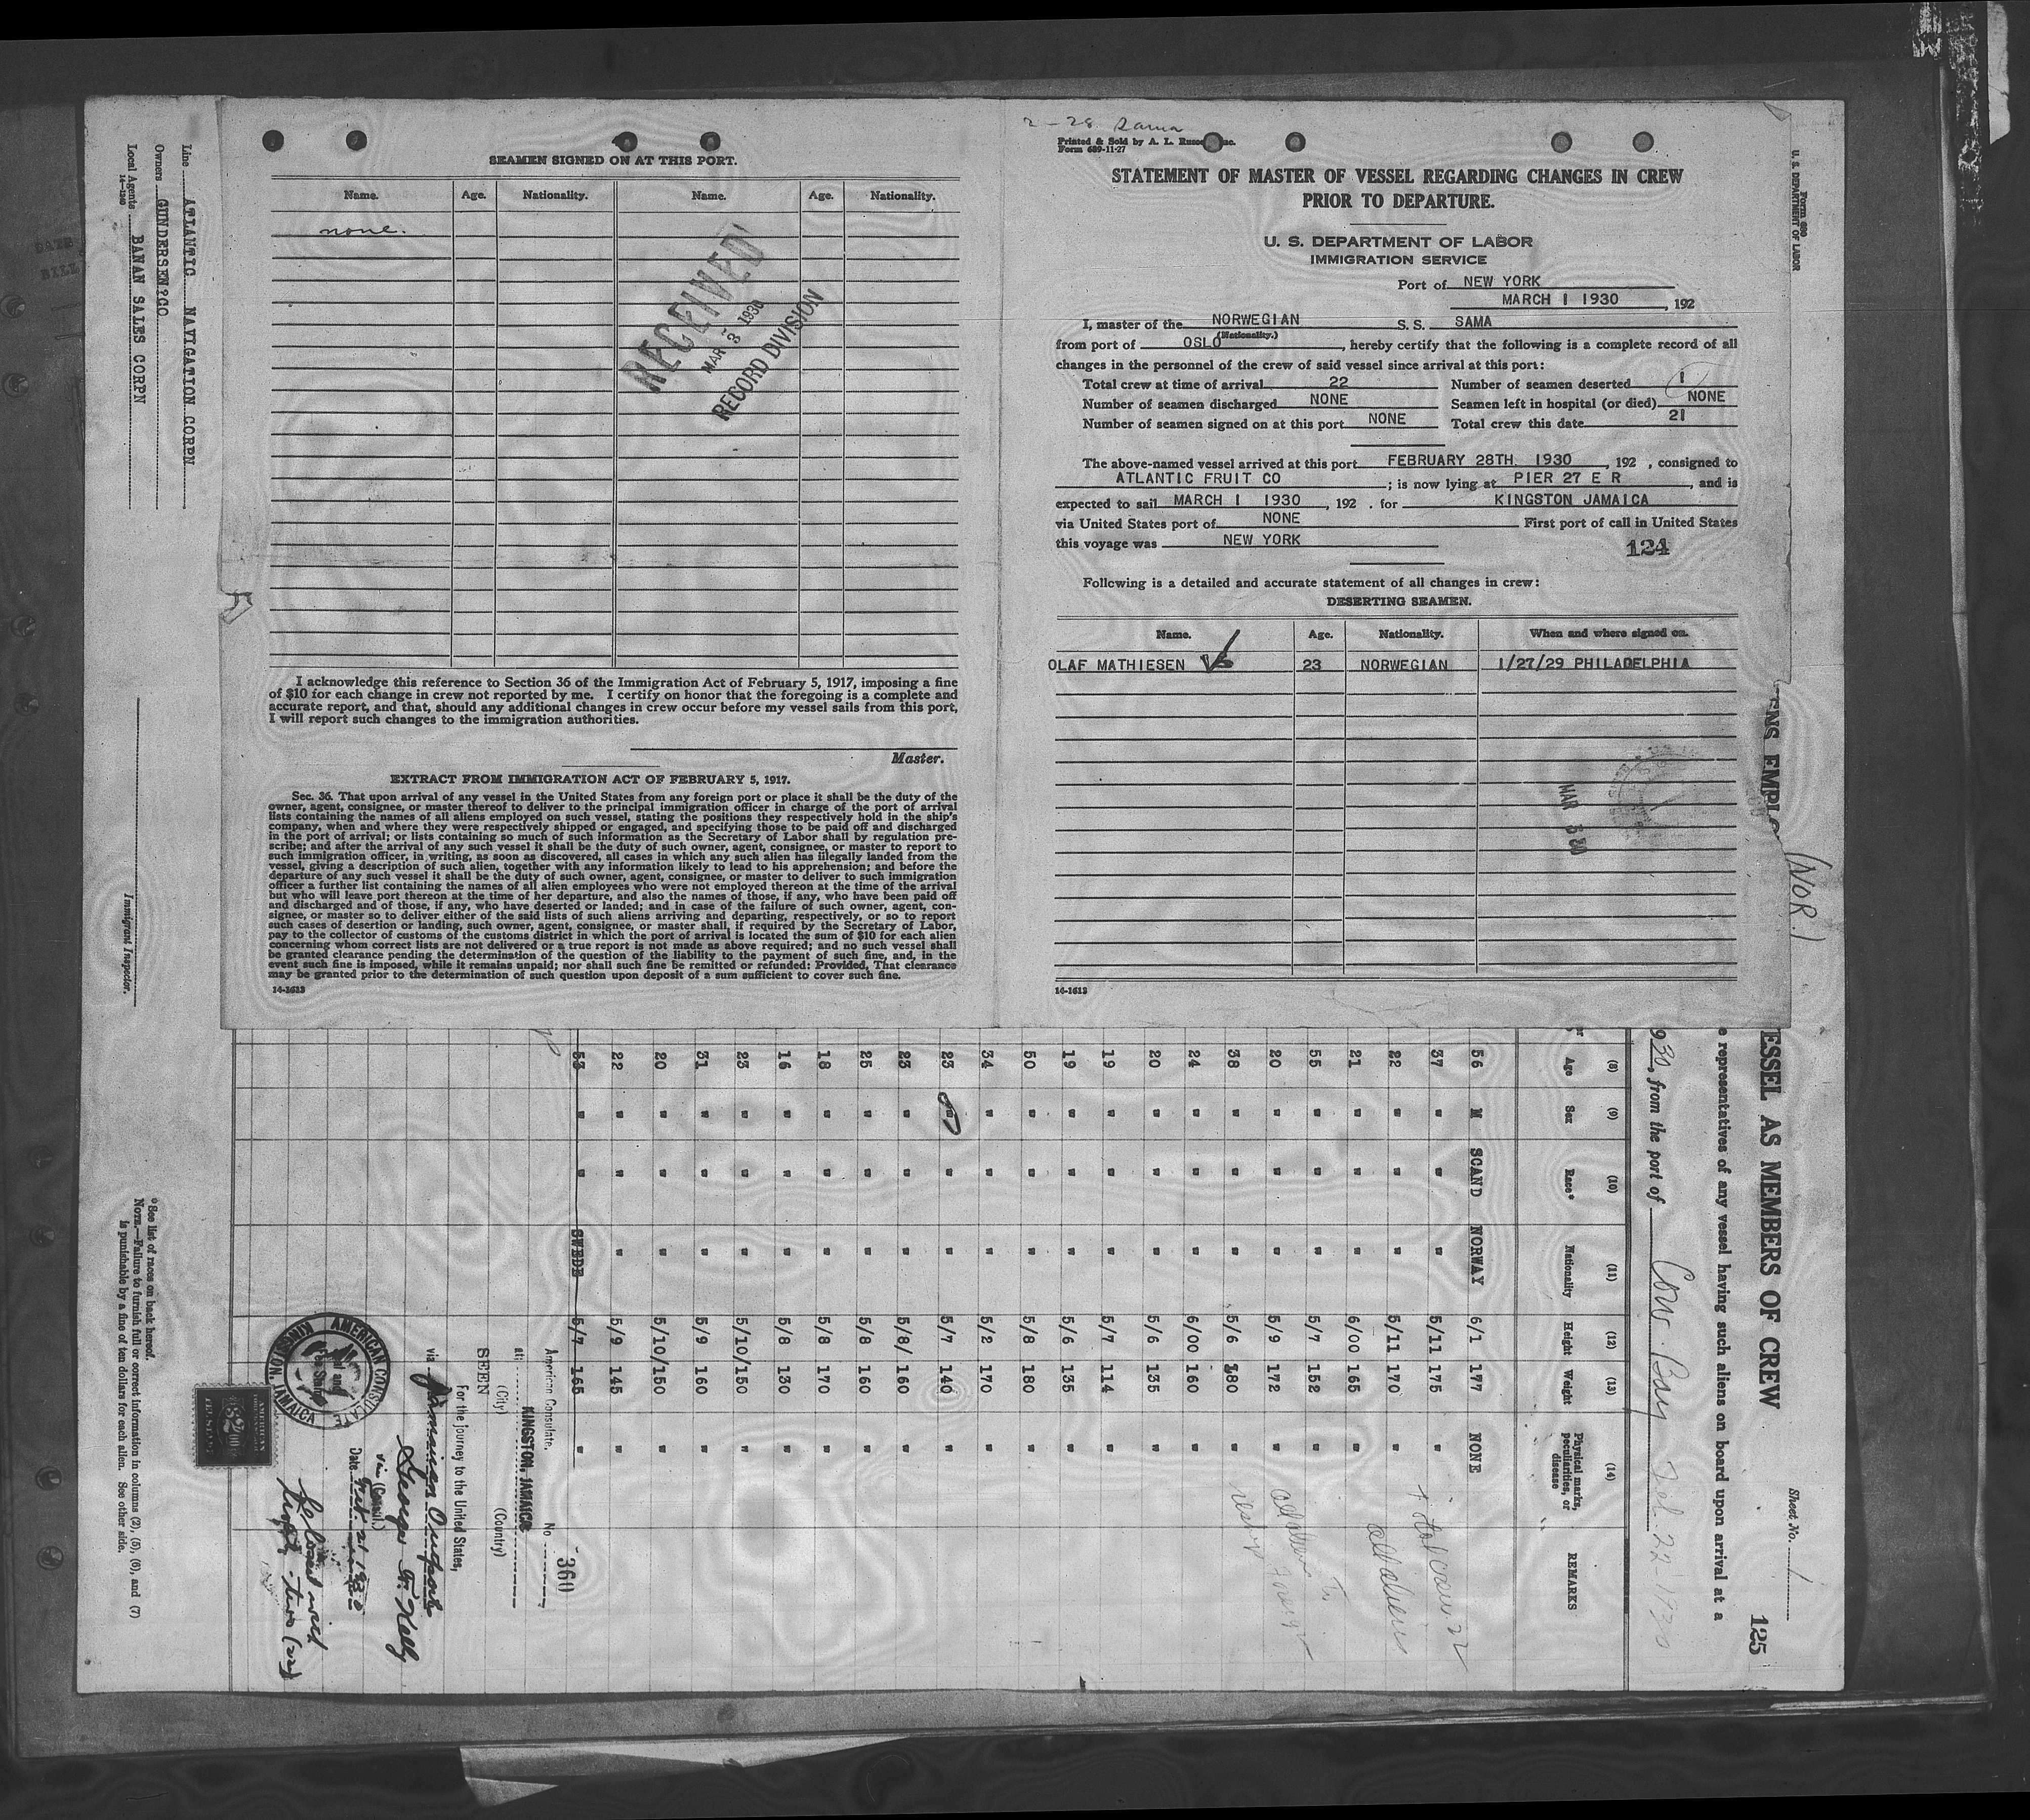 SEAMEN SIGNED ON AT THIS PORT.
Name. Age. Nationality. Name. Age. Nationality.
none.
RECEIVED
MAR 3 1930
RECORD DIVISION
I acknowledge this reference to Section 36 of the Immigration Act of February 5, 1917, imposing a fine
of $10 for each change in crew not reported by me. I certify on honor that the foregoing is a complete and
accurate report, and that, should any additional changes in crew occur before my vessel sails from this port,
I will report such changes to the immigration authorities.
Master.
EXTRACT FROM IMMIGRATION ACT OF FEBRUARY 5, 1917.
Sec. 36. That upon arrival of any vessel in the United States from any foreign port or place it shall be the duty of the
owner, agent, consignee, or master thereof to deliver to the principal immigration officer in charge of the port of arrival
lists containing the names of all aliens employed on such vessel, stating the positions they respectively hold in the ship's
company, when and where they were respectively shipped or engaged, and specifying those to be paid off and discharged
in the port of arrival; or lists containing so much of such information as the Secretary of Labor shall by regulation pre-
scribe; and after the arrival of any such vessel it shall be the duty of such owner, agent, consignee, or master to report to
such immigration officer, in writing, as soon as discovered, all cases in which any such alien has illegally landed from the
vessel, giving a description of such alien, together with any information likely to lead to his apprehension; and before the
departure of any such vessel it shall be the duty of such owner, agent, consignee, or master to deliver to such immigration
officer a further list containing the names of all alien employees who were not employed thereon at the time of the arrival
but who will leave port thereon at the time of her departure, and also the names of those, if any, who have been paid off
and discharged and of those, if any, who have deserted or landed; and in case of the failure of such owner, agent, con-
signee, or master so to deliver either of the said lists of such aliens arriving and departing, respectively, or so to report
such cases of desertion or landing, such owner, agent, consignee, or master shall, if required by the Secretary of Labor,
pay to the collector of customs of the customs district in which the port of arrival is located the sum of $10 for each alien
concerning whom correct lists are not delivered or a true report is not made as above required; and no such vessel shall
be granted clearance pending the determination of the question of the liability to the payment of such fine, and, in the
event such fine is imposed, while it remains unpaid; nor shall such fine be remitted or refunded: Provided, That clearance
may be granted prior to the determination of such question upon deposit of a sum sufficient to cover such fine.
14-1613
2-28 Sama
Printed & Sold by A. L. Inc.
Form 689-11-27
STATEMENT OF MASTER OF VESSEL REGARDING CHANGES IN CREW
PRIOR TO DEPARTURE.
U. S. DEPARTMENT OF LABOR
IMMIGRATION SERVICE
Port of NEW YORK
MARCH 1 1930, 192
I, master of the NORWEGIAN S. S. SAMA
(Nationality.)
from port of OSLO, hereby certify that the following is a complete record of all
changes in the personnel of the crew of said vessel since arrival at this port:
Total crew at time of arrival 22 Number of seamen deserted 1
Number of seamen discharged NONE Seamen left in hospital (or died) NONE
Number of seamen signed on at this port NONE Total crew this date 21
The above-named vessel arrived at this port FEBRUARY 28TH 1930, 192 , consigned to
ATLANTIC FRUIT CO ; is now lying at PIER 27 E R, and is
expected to sail MARCH 1 1930, 192 . for KINGSTON JAMAICA
via United States port of NONE First port of call in United States
this voyage was NEW YORK
124
Following is a detailed and accurate statement of all changes in crew:
DESERTING SEAMEN.
Name. Age. Nationality. When and where signed on.
OLAF MATHIESEN 23 NORWEGIAN 1/27/29 PHILADELPHIA
MAR 3 30
14-1613
Form 689
U. S. DEPARTMENT OF LABOR
ENS EMPLO
(NOR.)
Sheet No. 1
125
ESSEL AS MEMBERS OF CREW
e representatives of any vessel having such aliens on board upon arrival at a
930, from the port of Cow Bay Feb 22-1930
(8) (9) (10) (11) (12) (13) (14)
Age Sex Race* Nationality Height Weight Physical marks, peculiarities, or disease REMARKS
56 M SCAND NORWAY 6/1 177 NONE
37 " " " 5/11 175 "
22 " " " 5/11 170 "
21 " " " 6/00 165 "
55 " " " 5/7 152 "
20 " " " 5/9 172 "
38 " " " 5/6 180 "
24 " " " 6/00 160 "
20 " " " 5/6 135 "
19 " " " 5/7 114 "
19 " " " 5/6 135 "
50 " " " 5/8 180 "
34 " " " 5/2 170 "
23 " " " 5/7 140 "
23 " " " 5/8/ 160 "
25 " " " 5/8 160 "
18 " " " 5/8 170 "
16 " " " 5/8 130 "
23 " " " 5/10/150 "
31 " " " 5/9 160 "
20 " " " 5/10/150 "
22 " " " 5/9 145 "
53 " " SWEDE 5/7 165 "
No 360
American Consulate,
at: KINGSTON, JAMAICA
(City) (Country)
SEEN
For the journey to the United States,
via Jamaican Outports
George F. Kelly
(Consul.)
Date
AMERICAN CONSULATE
KINGSTON, JAMAICA
Closed with
twenty-two (22)
AMERICAN
$2
Line ATLANTIC NAVIGATION CORPN
Owners GUNDERSEN?CO
Local Agents BANAN SALES CORPN
14-1240
Immigrant Inspector.
*See list of races on back hereof.
NOTE.—Failure to furnish full or correct information in columns (2), (5), (6), and (7)
is punishable by a fine of ten dollars for each alien. See other side.